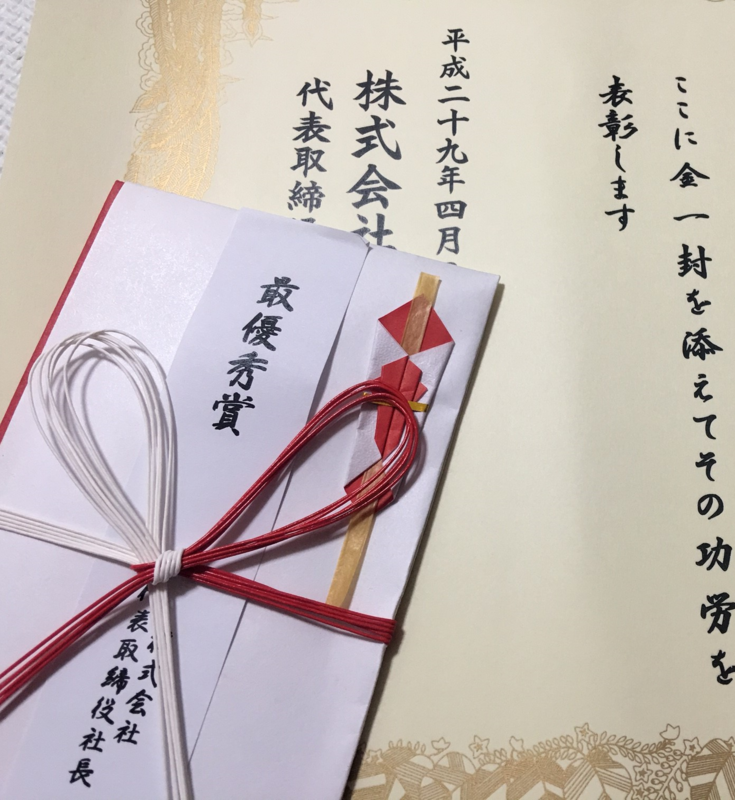 ここに金一封を添えてその功労を
表彰します
平成二十九年四月
株式会社
代表取締
最優秀賞
株式会社
代表取締役社長